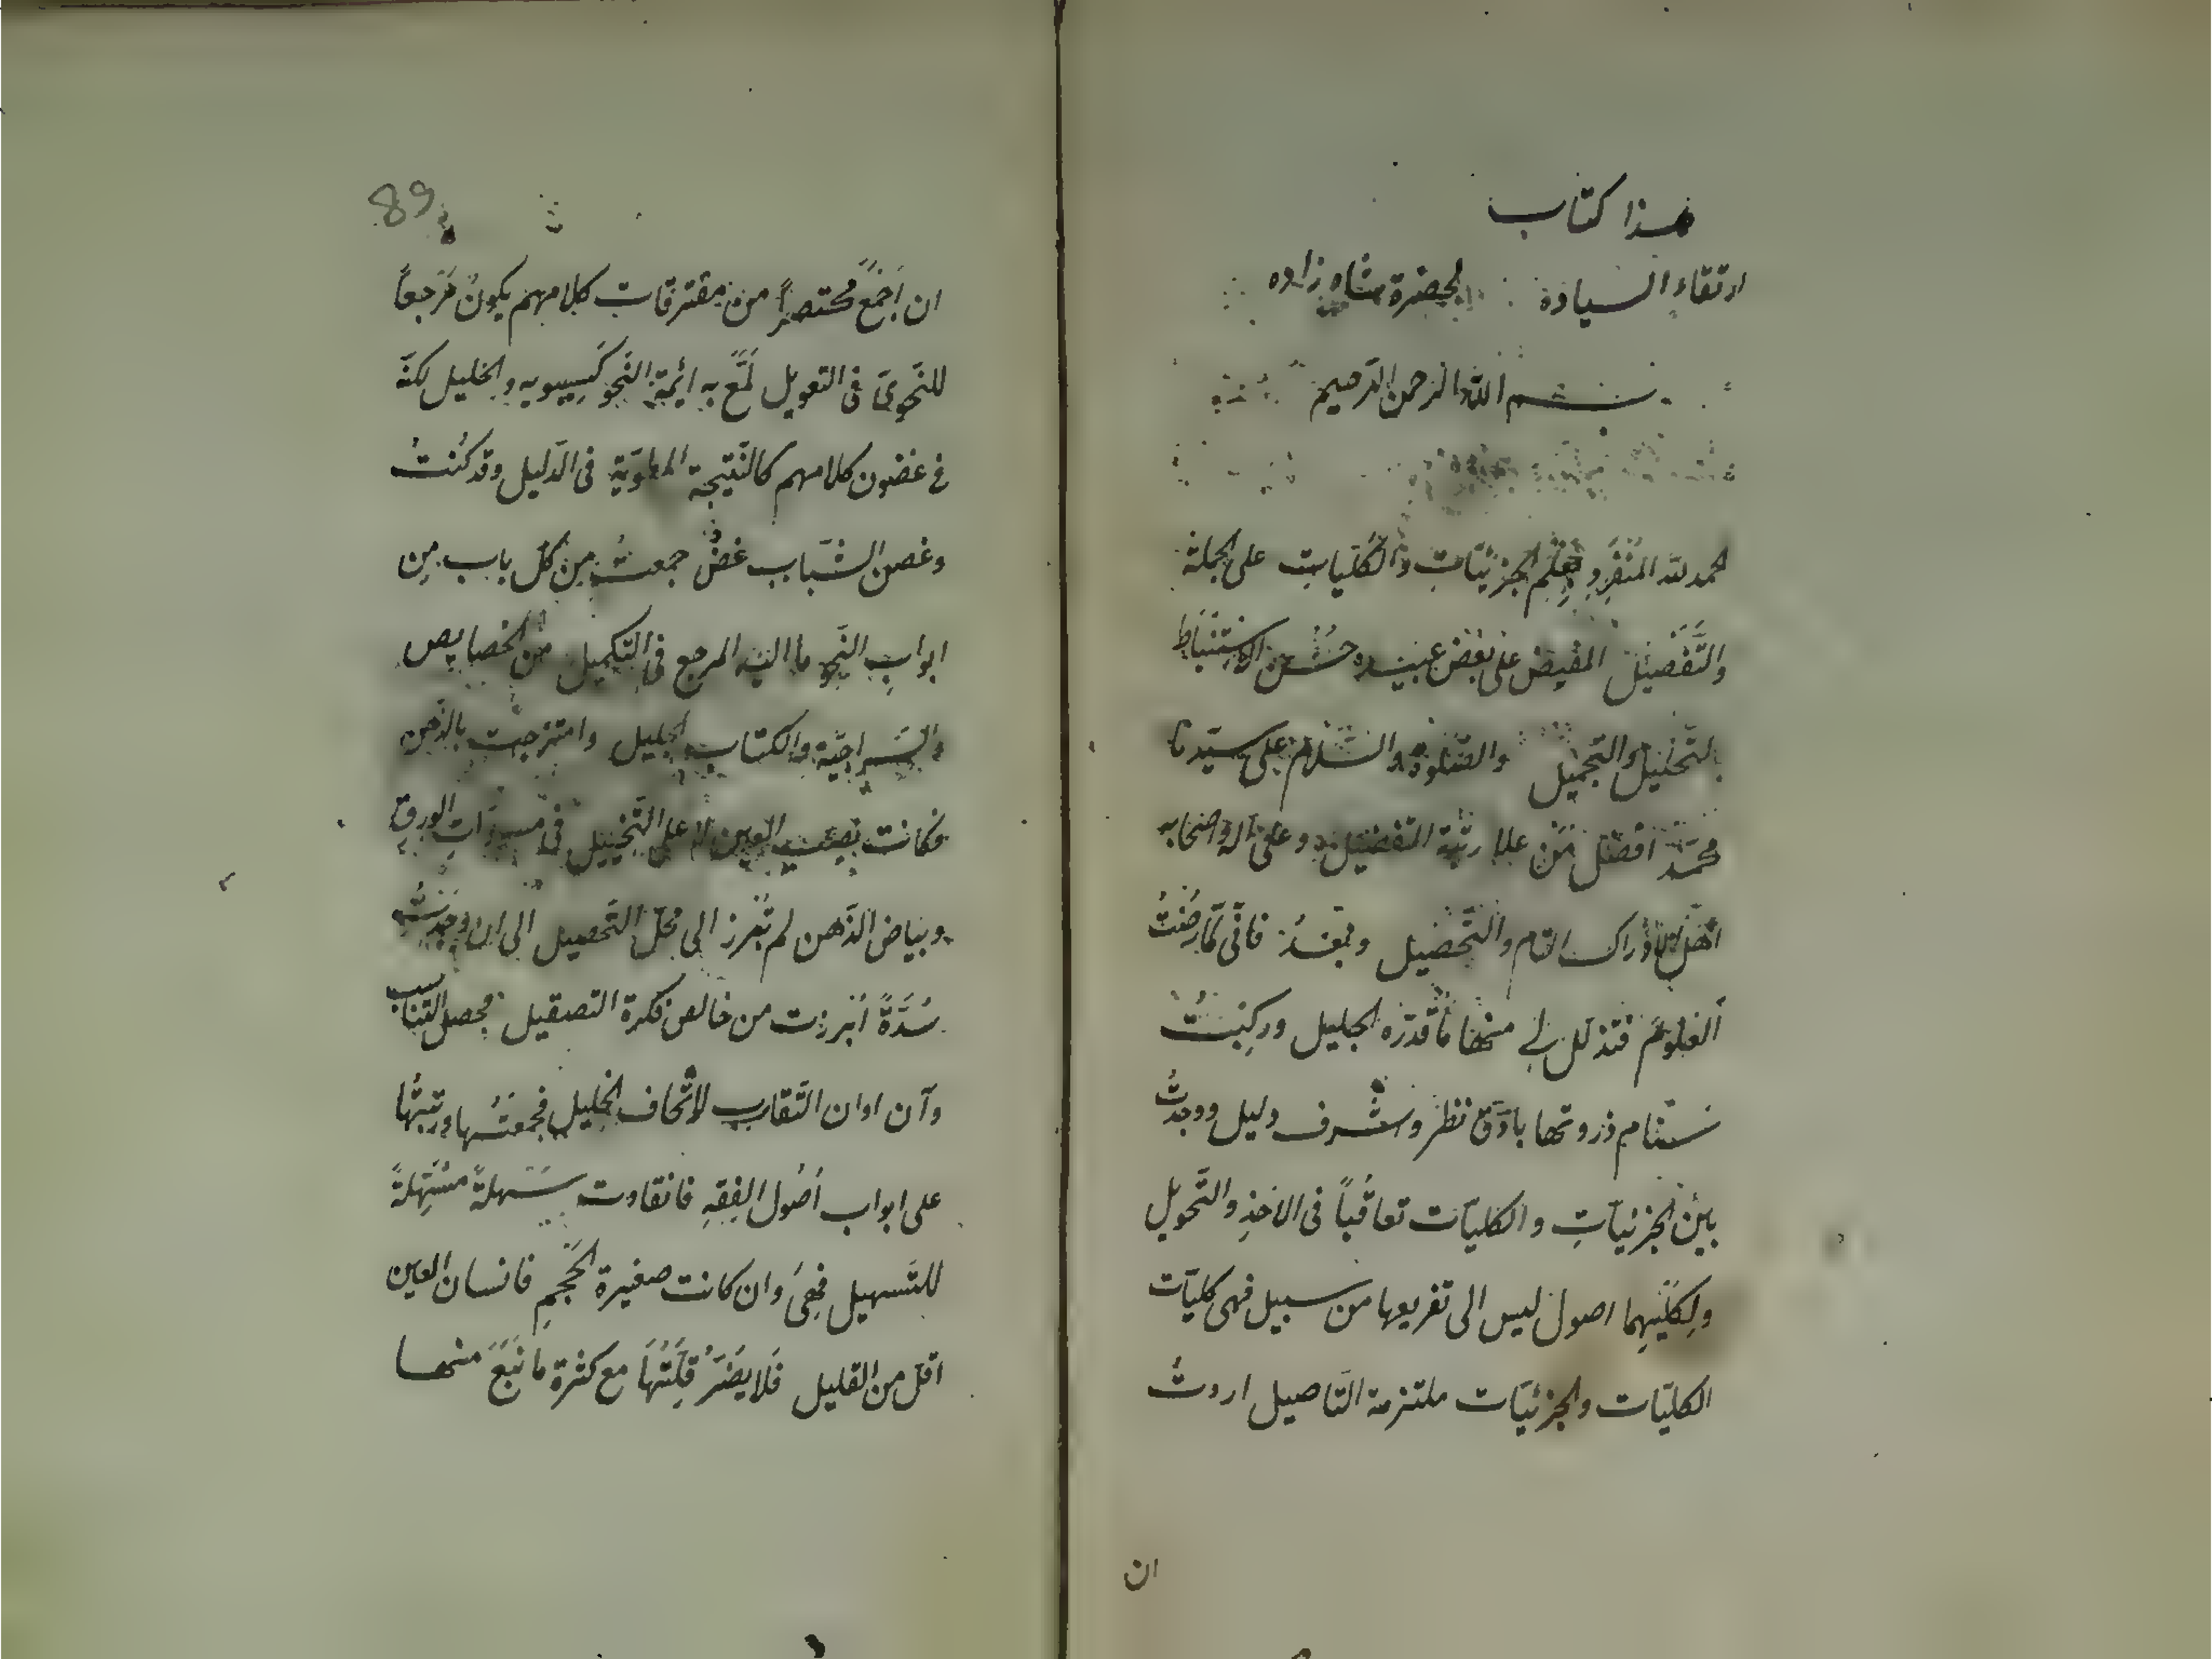 هذا كتاب
ارتقاء السيادة لحضرة شاه زاده
بسم الله الرحمن الرحيم
الحمد لله المُنفرِد بعِلم الجزئيّاتِ والكُليّاتِ على الجملة
والتَّفصيل المفيض على بعض عبيده حُسن الاستنباط
بالتّحليل والتجميل والصّلوة والسّلام على سيّدنا
محمّد افضل مَن علا رتبة التفضيل وعلى آله واصحابه
اهل الادراك التام والتَّحصيل وبعدُ فانّى لمّا رضتُ
العلومَ فتذلّل لي منها ما قدّره الجليل وركبتُ
سنام ذروتها بادَقّ نظر وشرف دليل ووجدتُ
بين الجزئياتِ والكليّات تعاقُباً فى الاخذِ والتَّحويل
ولِكلّيهِما اصول ليس الى تفريعها من سبيل فهى كليّات
الكليّات والجزئيّات ملتزمة التّاصيل اردتُ
ان
89
ان اَجمَعَ مختصراً من مفترقات كلامهم يكونُ مَرجعاً
للنَّحوىّ فى التعويل لَمَّعَ به ائمة النَّحو كَسِيبويه والخليل لكنَّه
فى غضون كلامهم كالنّتيجة المطويّة فى الدّليل وقد كُنتُ
وغصن الشّباب غضّ جمعتُ من كلّ باب مِن
ابوابِ النَّحو ما اليه المرجع فى التّكميل من الخصايص
والسّراجيّة والكتاب الجليل وامتزجت بالذّهن
فكانت نصب العين لا على التّخييل فى مسوّدَاتِ الورق
وبياض الذّهن لم تُبرز الى محلّ التّحصيل الى ان وجدتُ
سُدَّةً اُبرزت من خالص فكرة التصقيل فحصل التناسب
وآن اوان التّقارب لاتحاف الخليل فجمعتُها ورتبتُها
على ابواب اُصُول الفِقهِ فانقادت سَهلةً مُسَهِّلةً
للتّسهيل فهىَ وان كانت صغيرة الحَجمِ فانسان العين
اقلّ من القليل فَلا يضرُّ قِلّتُهَا مع كثرة ما نَبَعَ منها